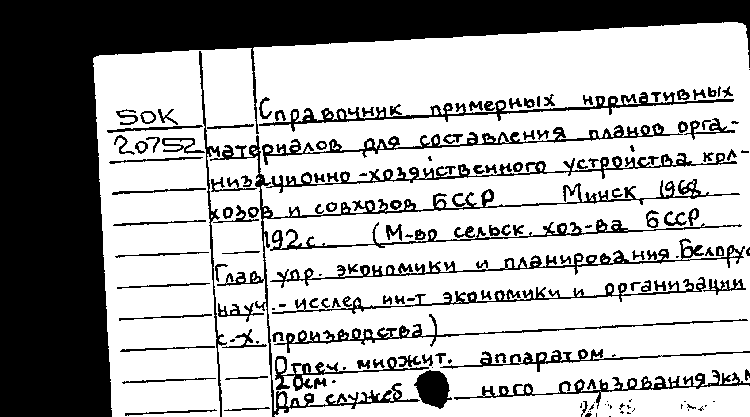 50К
20752
Справочник примерных нормативных
материалов для составления планов орга-
низационно-хозяйственного устройства кол-
хозов и совхозов БССР. Минск, 1968.
192 с. (М-во сельск. хоз-ва БССР.
Глав. упр. экономики и планирования. Белорус
науч.-исслед ин-т экономики и организации
с.-х. производства)
Отпеч. множит. аппаратом.
20см.
Для служеб ного пользования. Экз.